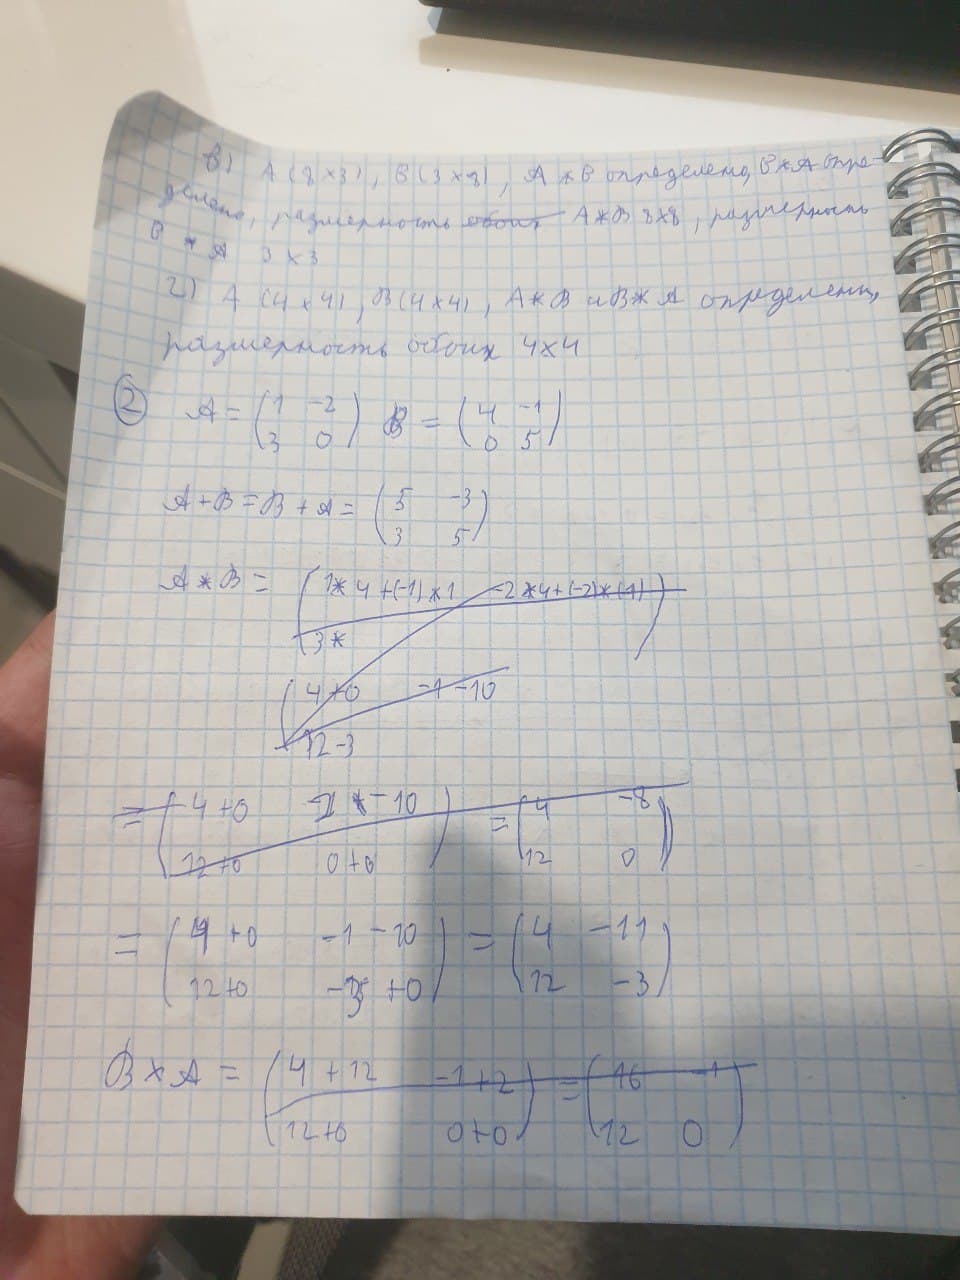 в) A (8 x 3), B (3 x 8), A * B определено, B * A опре-
делено, размерность обоих A * B 8x8, размерность
B * A 3 x 3
г) A (4 x 4), B (4 x 4), A * B и B * A определены,
размерность обоих 4x4
2 A = (1 -2 3 0) B = (4 -1 0 5)
A + B = B + A = (5 -3 3 5)
A * B = (1 * 4 + (-1) * 1 -2 * 4 + (-2) * (-1)
3 *
(4+0 -1 -10
12 -3
= (4 +0 -10 12 +0 0 +0) = (4 -8 12 0)
= (4 +0 -1 -10 12+0 -3 +0) = (4 -11 12 -3)
B x A = (4 + 12 -1 +2 12+0 0+0) = (16 -1 12 0)